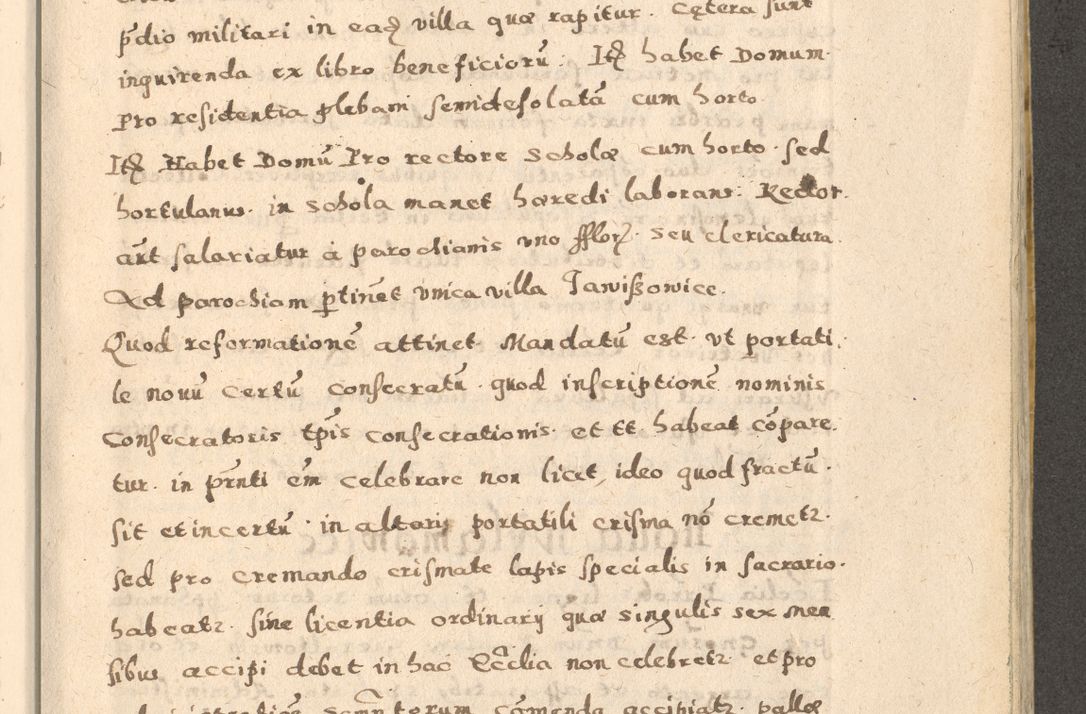 p̃dio militari in eadꝫ villa quæ rapitur. Cętera sunt
inquirenda ex libro beneficiorū. Itꝫ habet Domum
pro residentia plebani semidesolatā cum horto
Itꝫ Habet Domū Pro rectore scholæ cum horto. sed
hortulanus. in schola manet hæredi laborans. Rector.
aūt salariatur à parochianis uno fflorꝫ. seu clericatura.
Ad parochiam ꝑtinēt vnica villa Jawißowice.
Quod reformationē attinet. Mandatū est. vt portati.
le nouū certū consecratū. quod inscriptionē nominis
Consecratoris tp̄is consecrationis. et tt. habeat cōpare.
tur. in p̄nti em̄ celebrare non licet, ideo quod fractū.
sit et incertū. in altaris portatili crisma nō cremetꝛ.
sed pro cremando crismate lapis specialis in sacrario.
habeatꝛ. sine licentia ordinarij quæ singulis sex men
sibus accipi debet in hac Ecc̄lia non celebretꝛ. et pro
cōmenda accipiatꝛ. pallæ